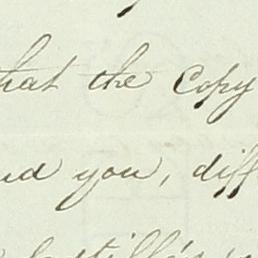 that the Copy
nd you, diff